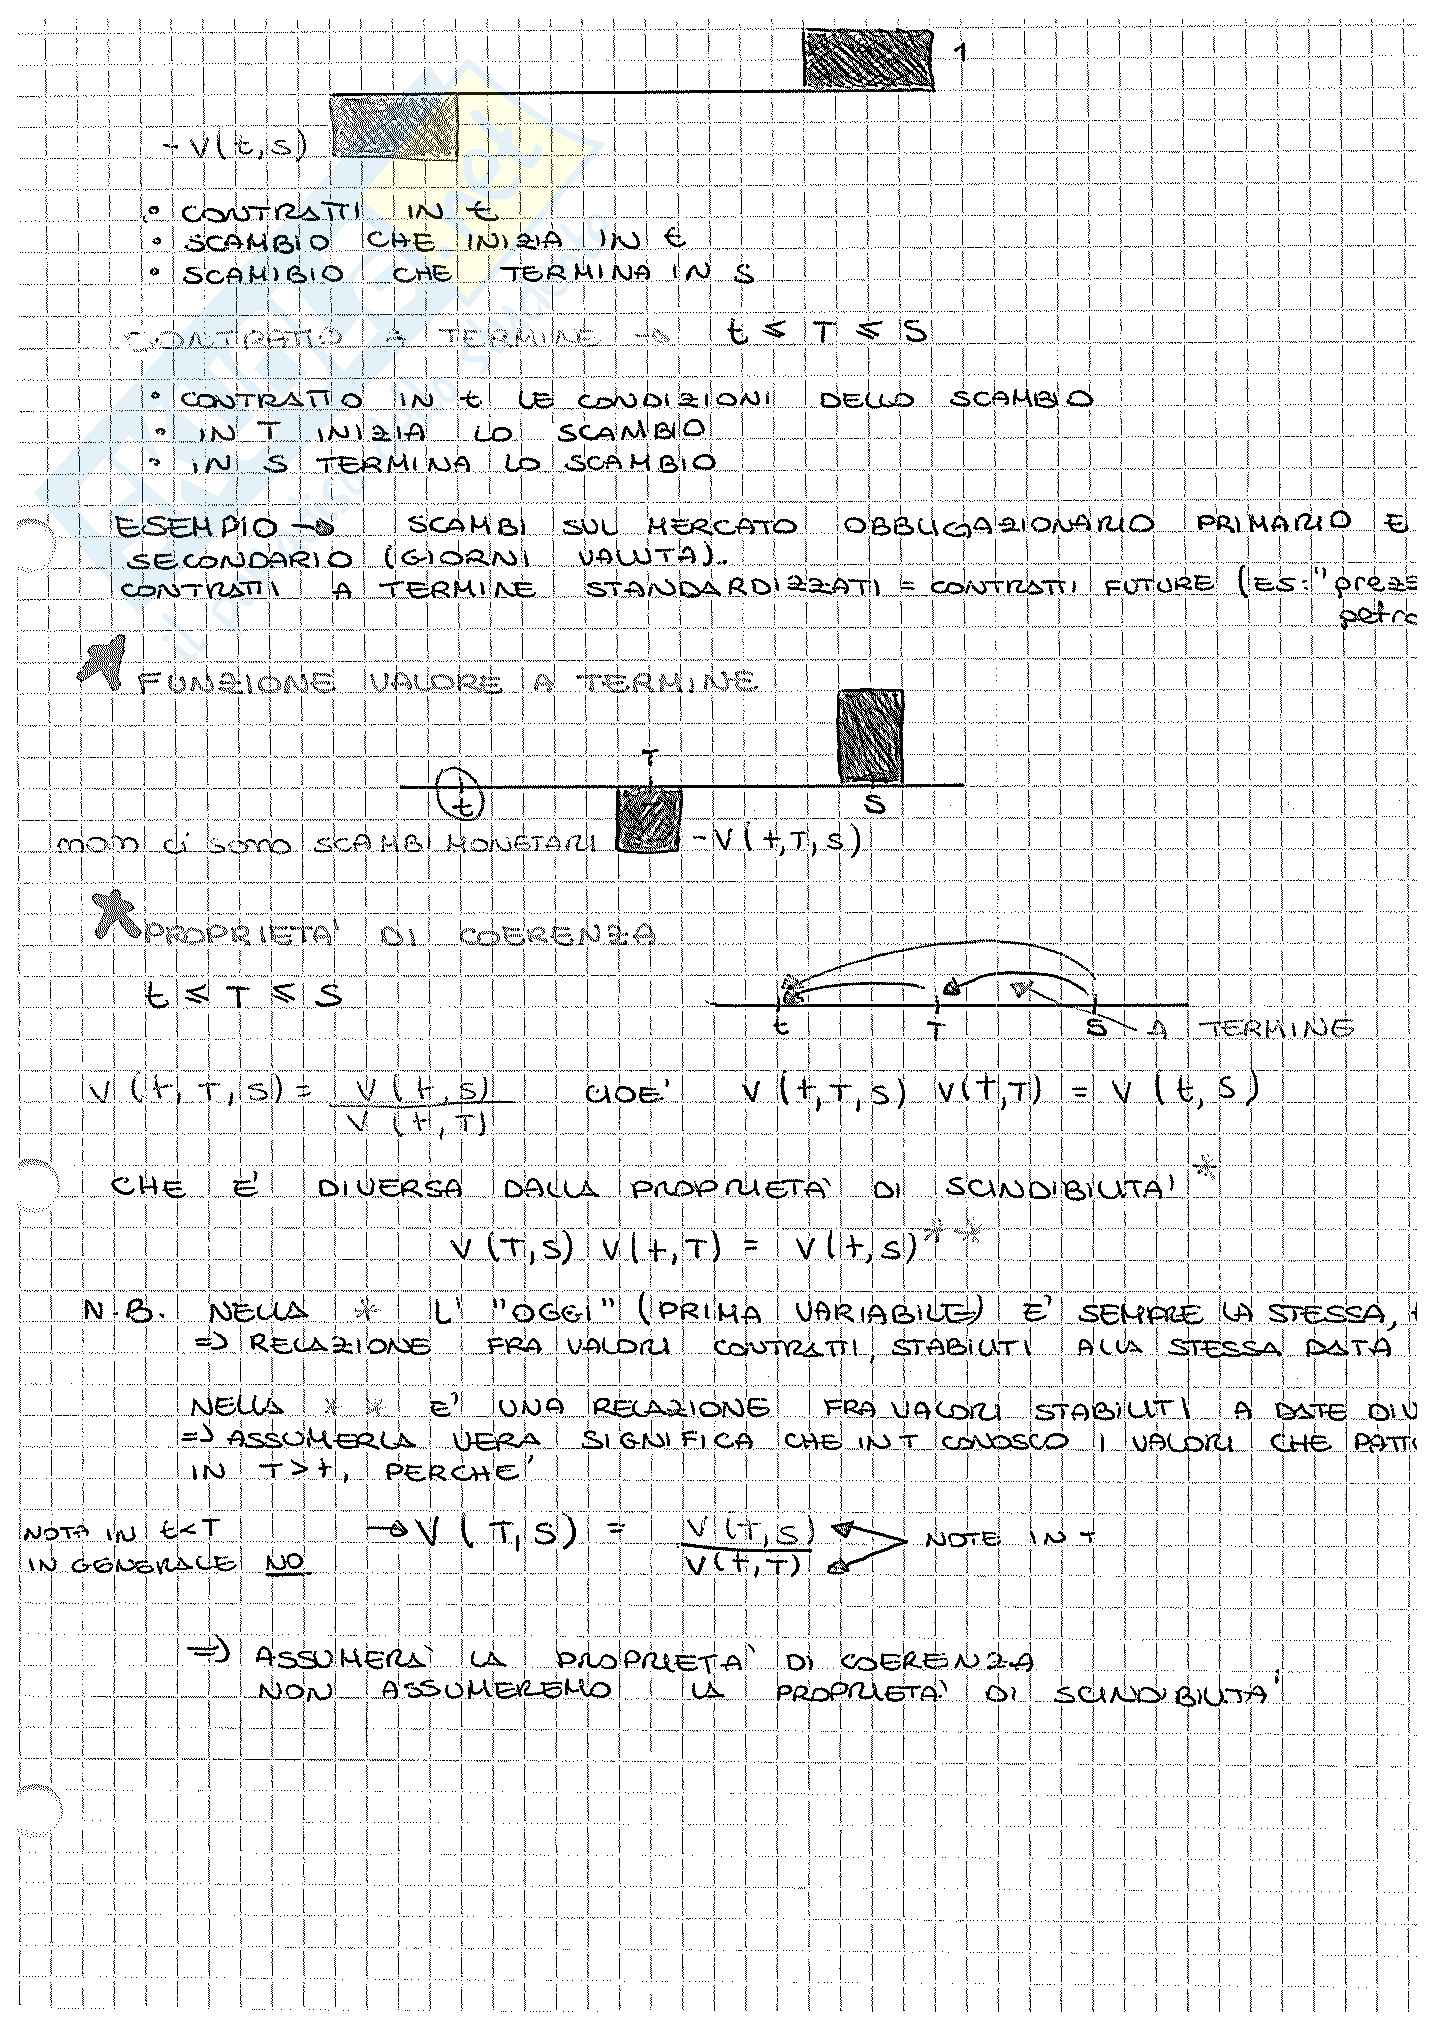 1
- V(t,s)
• CONTRATTI IN t
• SCAMBIO CHE INIZIA IN t
• SCAMIBIO CHE TERMINA IN S
CONTRATTO A TERMINE → t ≤ T ≤ S
• CONTRATTO IN t LE CONDIZIONI DELLO SCAMBIO
• IN T INIZIA LO SCAMBIO
• IN S TERMINA LO SCAMBIO
ESEMPIO → SCAMBI SUL MERCATO OBBLIGAZIONARIO PRIMARIO E
SECONDARIO (GIORNI VALUTA).
CONTRATTI A TERMINE STANDARDIZZATI = CONTRATTI FUTURE (ES: "prezz
petro
FUNZIONE VALORE A TERMINE
T
t S
non ci sono SCAMBI MONETARI -V(t,T,s)
PROPRIETA' DI COERENZA
t ≤ T ≤ S
t T S A TERMINE
V(t,T,s) = V(t,s) / V(t,T) CIOE' V(t,T,s) V(t,T) = V(t,s)
CHE E' DIVERSA DALLA PROPRIETA' DI SCINDIBILITA' *
V(T,s) V(t,T) = V(t,s) **
N.B. NELLA * L' "OGGI" (PRIMA VARIABILE) E' SEMPRE LA STESSA, t
=> RELAZIONE FRA VALORI CONTRATTI, STABILITI ALLA STESSA DATA
NELLA ** E' UNA RELAZIONE FRA VALORI STABILITI A DATE DIV
=> ASSUMERLA VERA SIGNIFICA CHE IN T CONOSCO I VALORI CHE PATT
IN T>t, PERCHE'
NOTA IN t<T → V(T,S) = V(t,s) / V(t,T) NOTE IN t
IN GENERALE NO
=> ASSUMERA' LA PROPRIETA' DI COERENZA
NON ASSUMEREMO LA PROPRIETA' DI SCINDIBILITA'